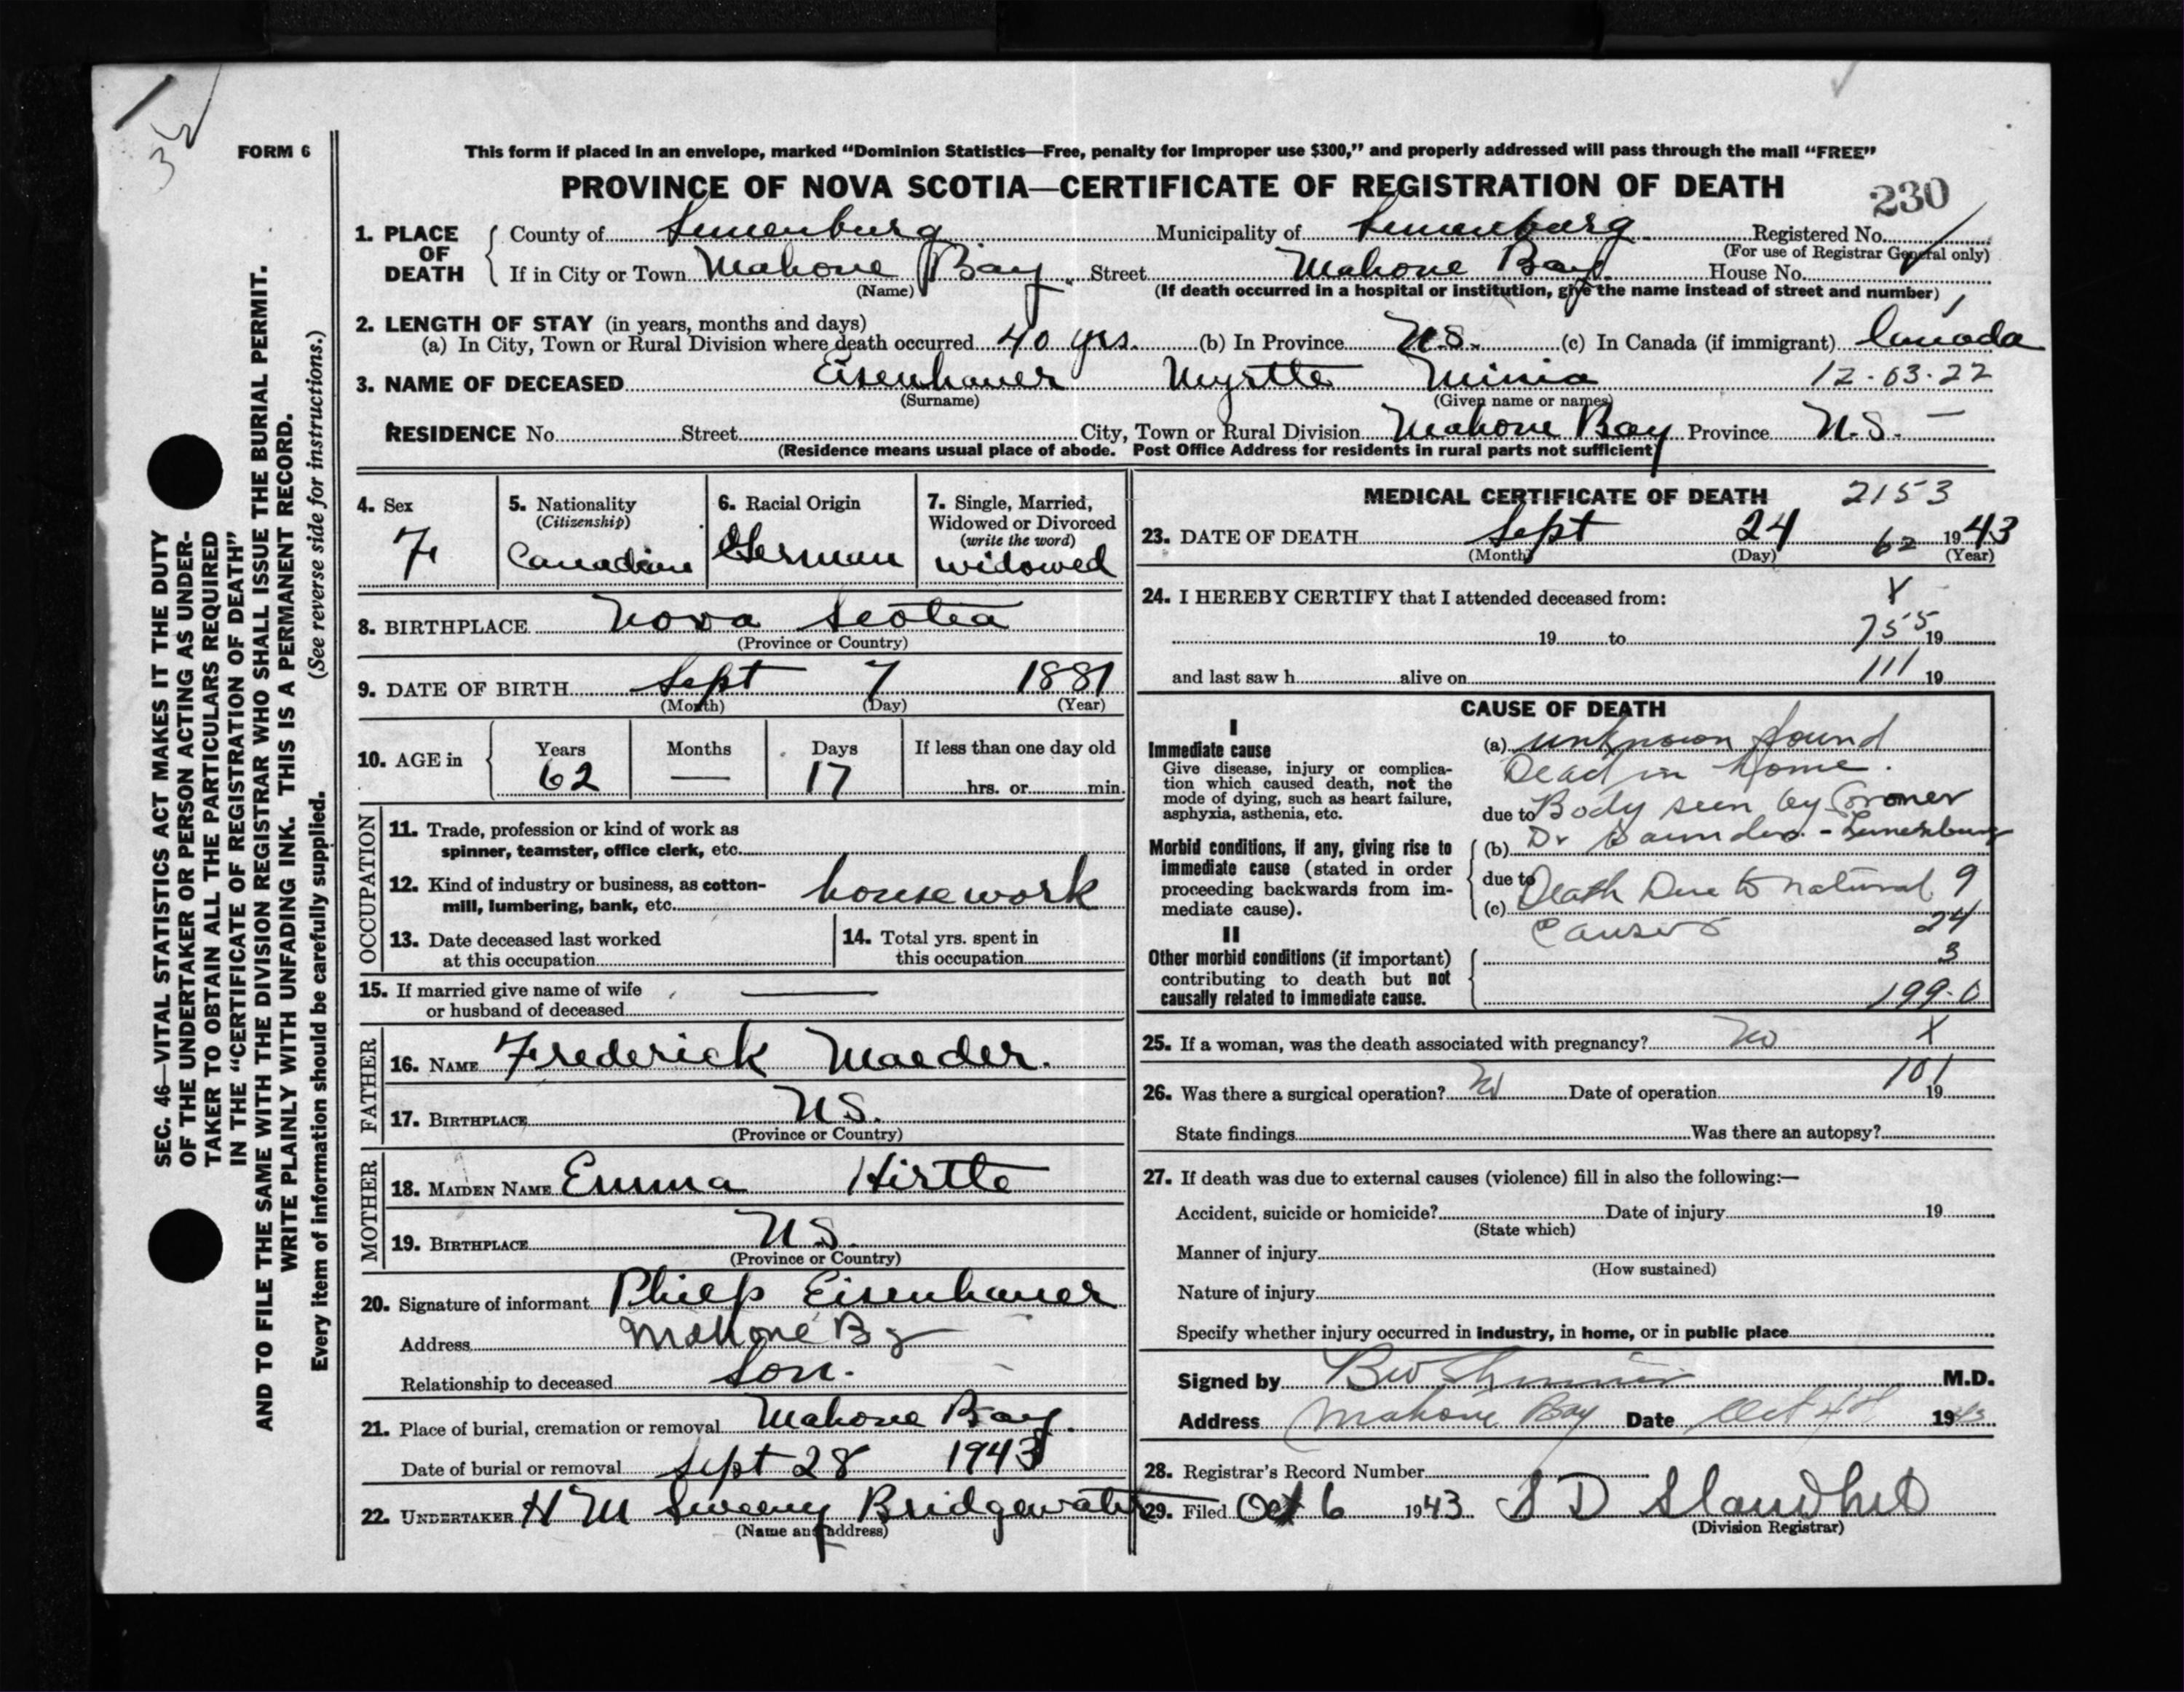 FORM 6
This form if placed in an envelope, marked “Dominion Statistics—Free, penalty for improper use $300,” and properly addressed will pass through the mail “FREE”
PROVINCE OF NOVA SCOTIA—CERTIFICATE OF REGISTRATION OF DEATH
230
1. PLACE OF DEATH
County of Lunenburg Municipality of Lunenburg Registered No.
(For use of Registrar General only)
If in City or Town Mahone Bay Street Mahone Bay House No.
(Name) (If death occurred in a hospital or institution, give the name instead of street and number)
2. LENGTH OF STAY (in years, months and days)
(a) In City, Town or Rural Division where death occurred 40 yrs. (b) In Province N.S. (c) In Canada (if immigrant) Canada
3. NAME OF DECEASED Eisenhauer Myrtle Minia 12-03-22
(Surname) (Given name or names)
RESIDENCE No. Street City, Town or Rural Division Mahone Bay Province N.S. —
(Residence means usual place of abode. Post Office Address for residents in rural parts not sufficient)
SEC. 46—VITAL STATISTICS ACT MAKES IT THE DUTY
OF THE UNDERTAKER OR PERSON ACTING AS UNDER-
TAKER TO OBTAIN ALL THE PARTICULARS REQUIRED
IN THE “CERTIFICATE OF REGISTRATION OF DEATH”
AND TO FILE THE SAME WITH THE DIVISION REGISTRAR WHO SHALL ISSUE THE BURIAL PERMIT.
WRITE PLAINLY WITH UNFADING INK. THIS IS A PERMANENT RECORD.
Every item of information should be carefully supplied. (See reverse side for instructions.)
4. Sex
F
5. Nationality
(Citizenship)
Canadian
6. Racial Origin
German
7. Single, Married,
Widowed or Divorced
(write the word)
widowed
8. BIRTHPLACE Nova Scotia
(Province or Country)
9. DATE OF BIRTH Sept 7 1881
(Month) (Day) (Year)
10. AGE in
Years Months Days If less than one day old
62 — 17 hrs. or min.
OCCUPATION
11. Trade, profession or kind of work as
spinner, teamster, office clerk, etc.
12. Kind of industry or business, as cotton-
mill, lumbering, bank, etc. housework
13. Date deceased last worked
at this occupation
14. Total yrs. spent in
this occupation
15. If married give name of wife
or husband of deceased —
FATHER
16. NAME Frederick Maeder.
17. BIRTHPLACE N.S.
(Province or Country)
MOTHER
18. MAIDEN NAME Emma Hirtle
19. BIRTHPLACE N.S.
(Province or Country)
20. Signature of informant Philp Eisenhauer
Address Mahone By
Relationship to deceased Son.
21. Place of burial, cremation or removal Mahone Bay.
Date of burial or removal Sept 28 1943
22. UNDERTAKER H M Sweeny Bridgewater
(Name and address)
MEDICAL CERTIFICATE OF DEATH 2153
23. DATE OF DEATH Sept 24 62 1943
(Month) (Day) (Year)
24. I HEREBY CERTIFY that I attended deceased from: X
19 to 755 19
and last saw h alive on 111 19
CAUSE OF DEATH
I
Immediate cause
Give disease, injury or complica-
tion which caused death, not the
mode of dying, such as heart failure,
asphyxia, asthenia, etc.
(a) unknown found
Dead in home.
due to Body seen by Coroner
Morbid conditions, if any, giving rise to
immediate cause (stated in order
proceeding backwards from im-
mediate cause).
(b) Dr Saunders - Lunenburg
due to Death Due to natural 9
(c) causes 24
II
Other morbid conditions (if important)
contributing to death but not
causally related to immediate cause.
3
199-0
25. If a woman, was the death associated with pregnancy? No X
26. Was there a surgical operation? No Date of operation 101 19
State findings Was there an autopsy?
27. If death was due to external causes (violence) fill in also the following:—
Accident, suicide or homicide? Date of injury 19
(State which)
Manner of injury
(How sustained)
Nature of injury
Specify whether injury occurred in industry, in home, or in public place
Signed by M.D.
Address Mahone Bay Date Oct 1943
28. Registrar's Record Number
29. Filed Oct 6 1943 S D
(Division Registrar)